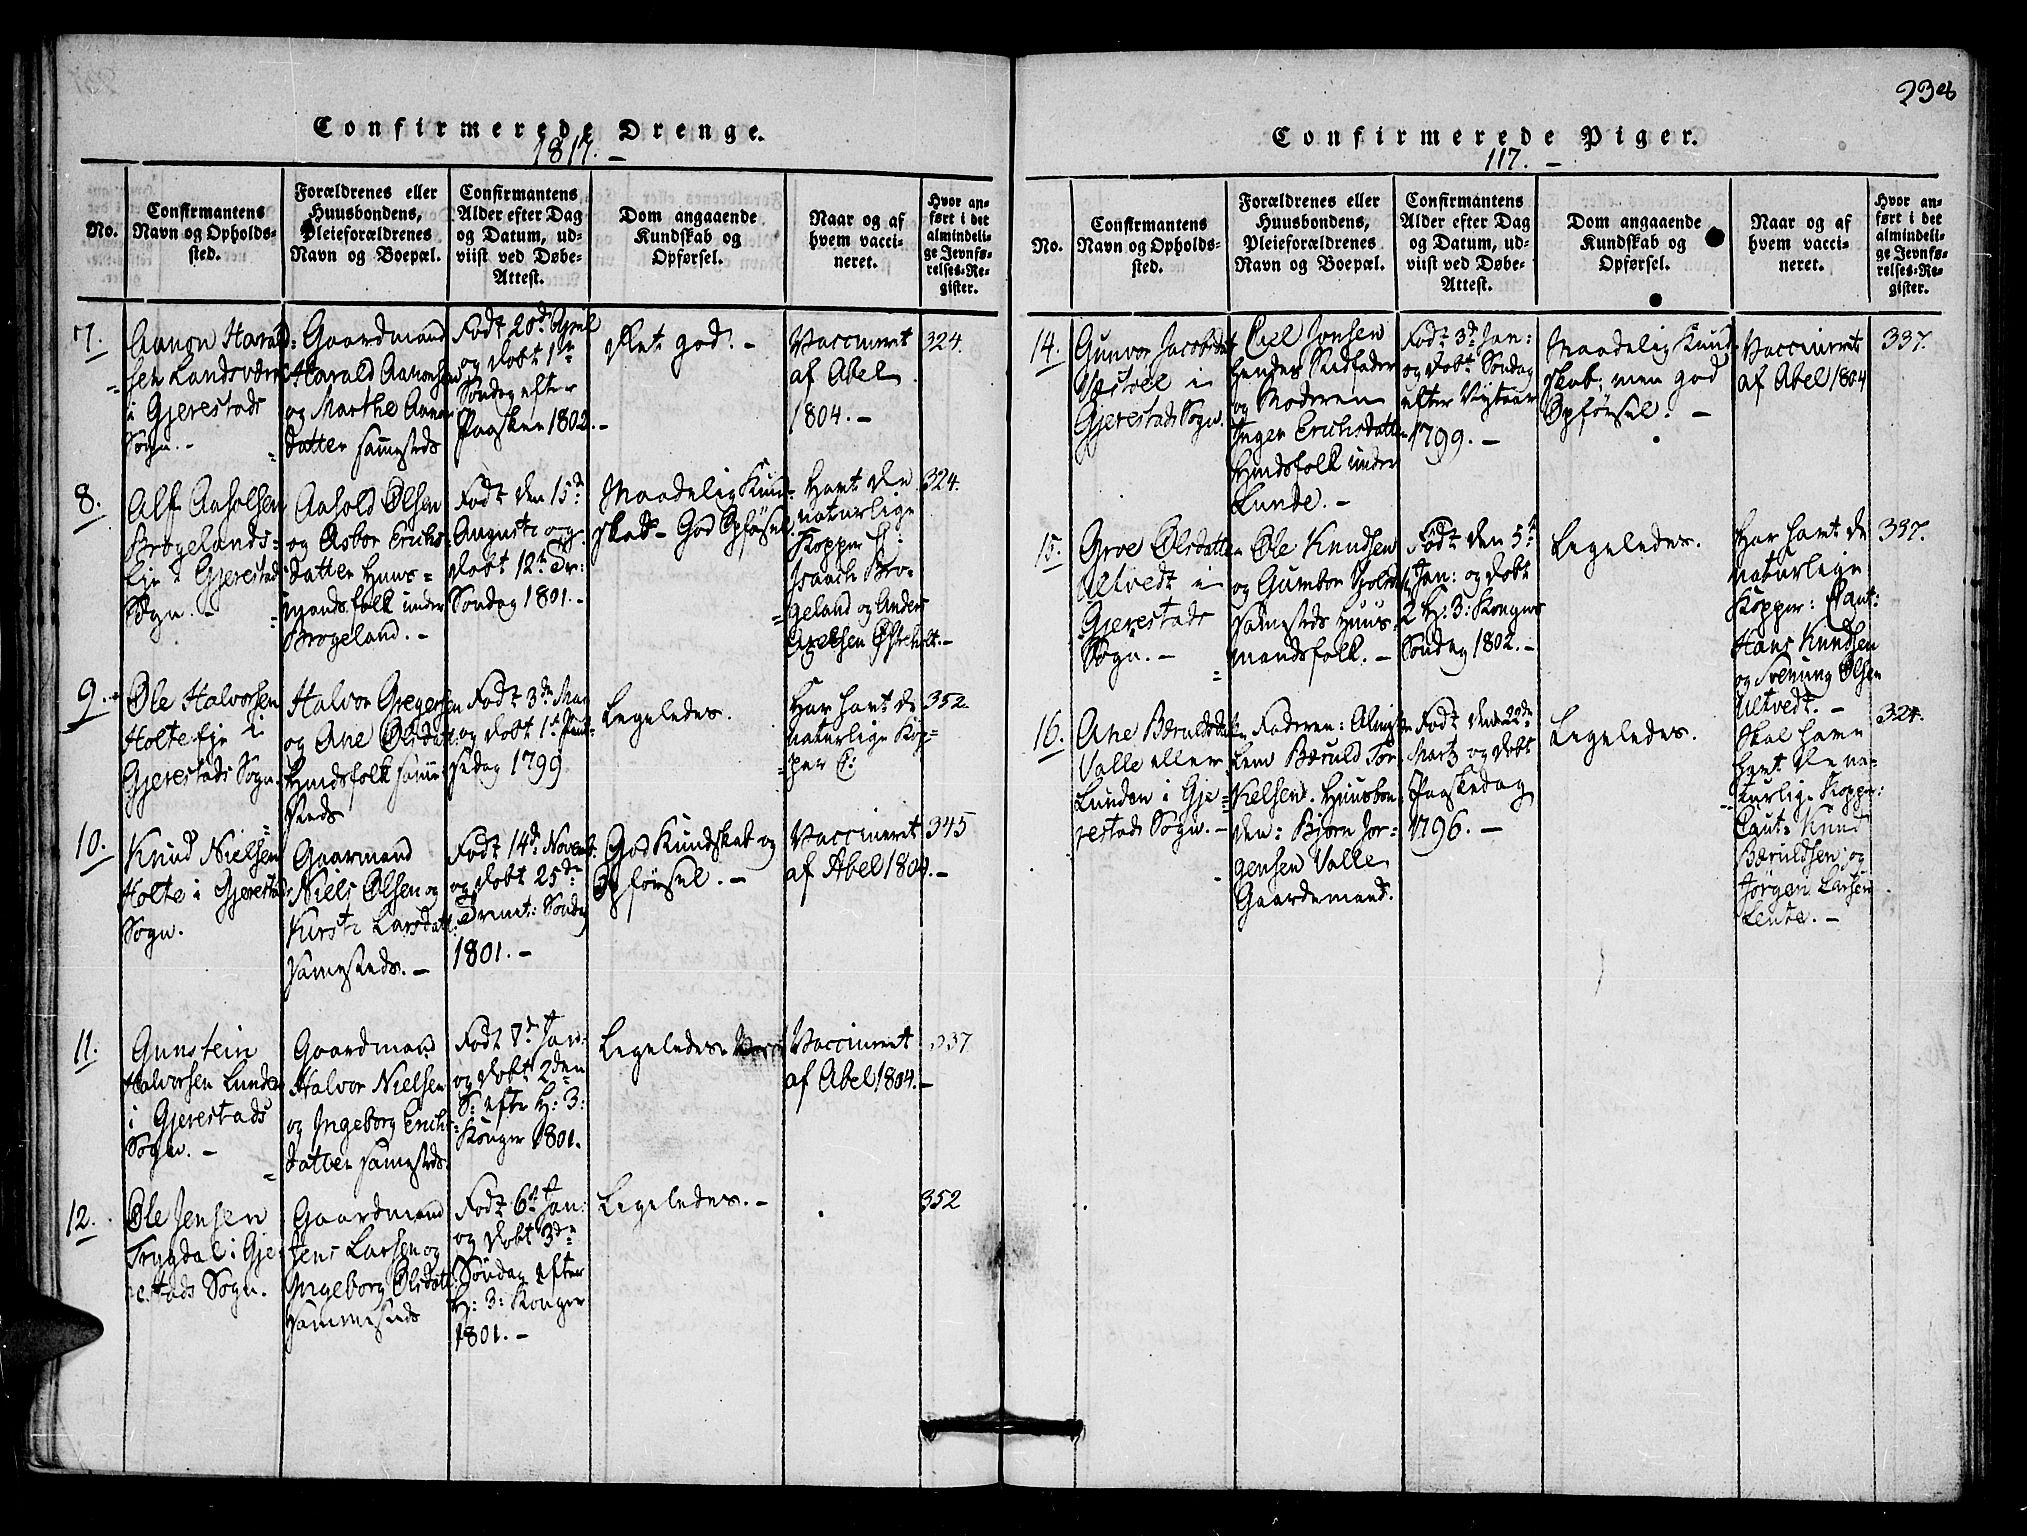 Confirmerede Drenge.
1817. –
No.
Confirmantens
Navn og Opholds-
sted.
Forældrenes eller
Huusbondens,
Pleieforældrenes
Navn og Boepæl.
Confirmantens
Alder efter Dag
og Datum, ud-
viist ved Døbe-
Attest.
Dom angaaende
Kundskab og
Opførsel.
Naar og af
hvem vacci-
neret.
Hvor an-
ført i det
almindeli-
ge Jevnfø-
relses-Re-
gister.
7.
Aanon Harald-
sen Landsværk
i Gjerestads
Sogn. –
Gaardmand
Harald Aanonsen
og Marthe Aanon
datter sammesteds
Født 20de April
og døbt 1ste
Søndag efter
Paasken 1802. –
Ret god. –
Vaccineret
af Abel
1804. –
324.
8.
Alf Aasolsen
Brøgelands-
Eje i Gjerestads
Sogn. –
Aasold Olsen
og Asbor Erichs-
datter Huus-
mandsfolk under
Brøgeland. –
Født den 15de
Augusti og
døbt 12te Tr:
Søndag 1801. –
Maadelig Kund-
skab – God Opførsel.
Havt de
naturlige
Kopper
Isaach Brø-
geland og Anders
Axelsen Østeholt. –
324.
9.
Ole Halvorsen
Holte Eje i
Gjerestads Sogn.
Halvor Gregersen
og Ane Olsdatter
Huusfolk samme-
steds
Født 3de Maj
og døbt 1st Pint-
sedag 1799
Ligeledes.
Har havt de
naturlige Kop-
per
352.
10.
Knud Nielsen
Holte i Gjerestads
Sogn.
Gaarmand
Niels Olsen og
Kirsti Larsdatt:
sammesteds. –
Født 14de Novemb.
og døbt 25de
Trinit: Søndag
1801. –
God Kundskab og
Opførsel. –
Vaccineret
af Abel 1804. –
345
11.
Gunstein
Halvorsen Lunden
i Gjerestads
Sogn. –
Gaardmand
Halvor Nielsen
og Ingeborg Erichs
datter sammesteds.
Født 7de Jan:
og døbt 2den
S: efter H: 3:
Konger 1801.
Ligeledes.
Vaccineret
af Abel 1804. –
337.
12.
Ole Jensen
Trygdal i Gje-
restads Sogn.
Gaardmand
Jens Larsen og
Ingeborg Olsdatt:
Sammesteds
Født 6te Jan:
og døbt 3de
Søndag efter
H: 3: Konger
1801. –
Ligeledes. –
352
238
Confirmerede Piger.
117. –
No.
Confirmantens
Navn og Opholds-
sted.
Forældrenes eller
Huusbondens,
Pleieforældrenes
Navn og Boepæl.
Confirmantens
Alder efter Dag
og Datum, ud-
viist ved Døbe-
Attest.
Dom angaaende
Kundskab og
Opførsel.
Naar og af
hvem vacci-
neret.
Hvor an-
ført i det
almindeli-
ge Jevnfø-
relses-Re-
gister.
14.
Gunvor Jacobsdatter
i
Gjerestads Sogn.
Jonsen
hendes Stedfader
og Moderen
Inger Erichsdatter
Huusfolk under
Lunde. –
Født 3de Jan:
og døbt Søndag
efter Nytaar
1799. –
Maadelig Kund-
skab; men god
Opførsel. –
Vaccineret
af Abel 1804
337.
15.
Groe Olsdatter
Ultvedt i
Gjerestads
Sogn. –
Ole Knudsen
og Gumbor
sammesteds Huus-
mandsfolk. –
Født den 5te
Jan: og døbt
2 H: 3: Kongers
Søndag 1802. –
Ligeledes.
Har havt de
naturlige
Kopper:
Hans Knudsen
og Svenung Olsen
Ultvedt. –
337.
16.
Ane Bæruldsdatter
Valle eller
Lunden i Gje-
restads Sogn. –
Faderen: Almis-
Lem Bæruld Tor-
kelsen. Huusbon-
den: Bjørn Jør-
gensen Valle
Gaardemand.
Født den 22de
Martz og døbt
Paaskedag
1796. –
Ligeledes.
Skal have
havt de na-
turlige Kopper:
Knud
Bæruldsen og
Jørgen Larsen
Lente. –
324.